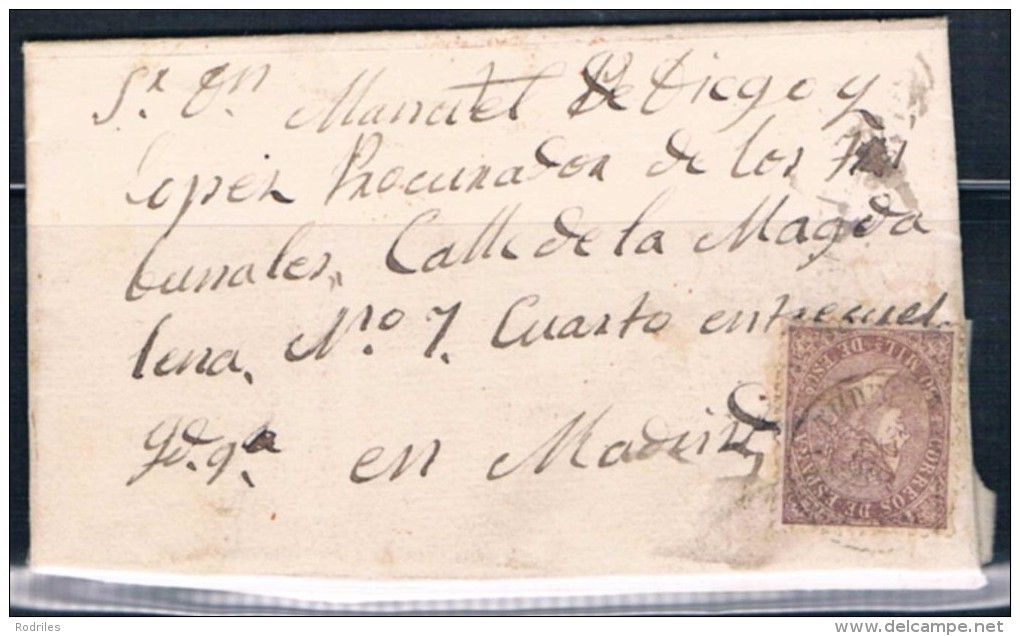 Sr. Dn Manuel De Diego y
Lopez Procurador de los Tri
bunales, Calle de la Magda
lena, Nro 7. Cuarto
en Madrid
CORREOS DE ESPAÑA
50 MILS DE ESCO
Rodriles
www.delcampe.net